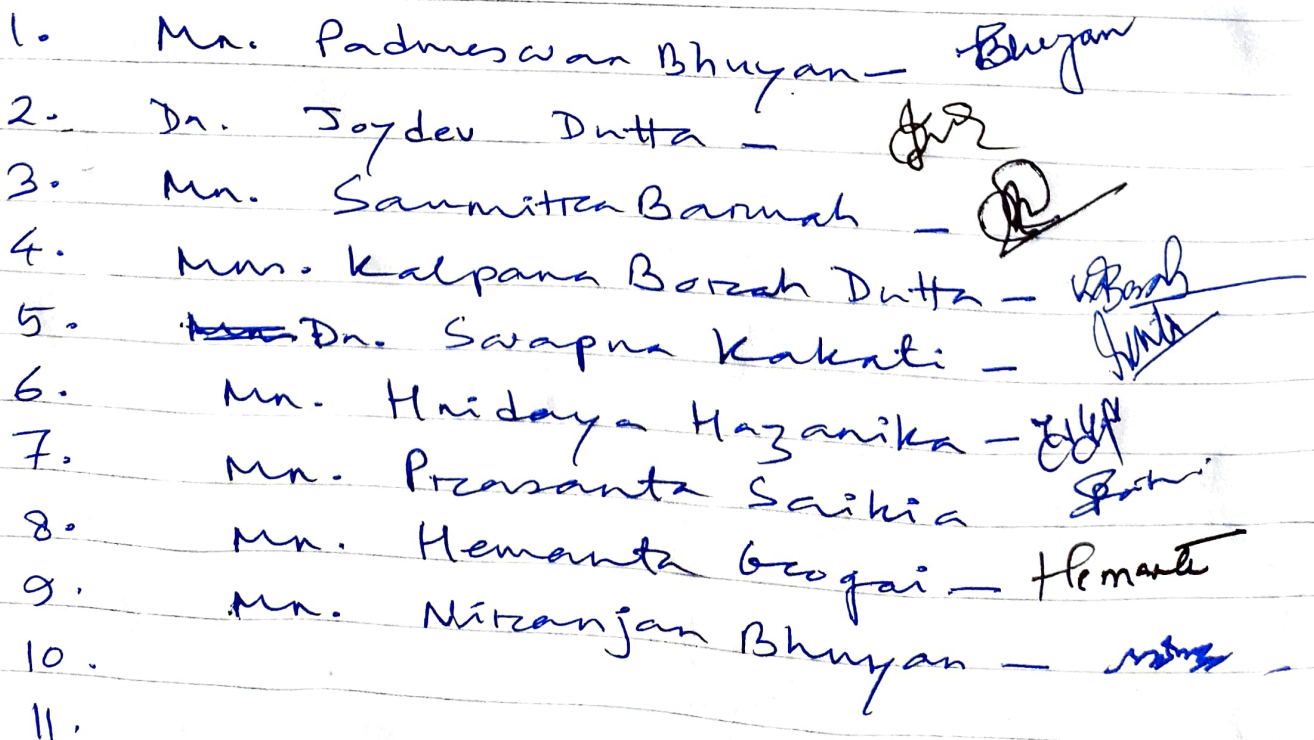 1. Mr. Padmeswar Bhuyan - Bhuyan
2. Dr. Joydev Dutta -
3. Mr. Saumitra Baruah -
4. Mrs. Kalpana Borah Dutta - KBorah
5. Dr. Swapna Kakati -
6. Mr. Hridaya Hazarika -
7. Mr. Prasanta Saikia
8. Mr. Hemanta Gogoi - Hemanta
9. Mr. Niranjan Bhuyan -
10.
11.